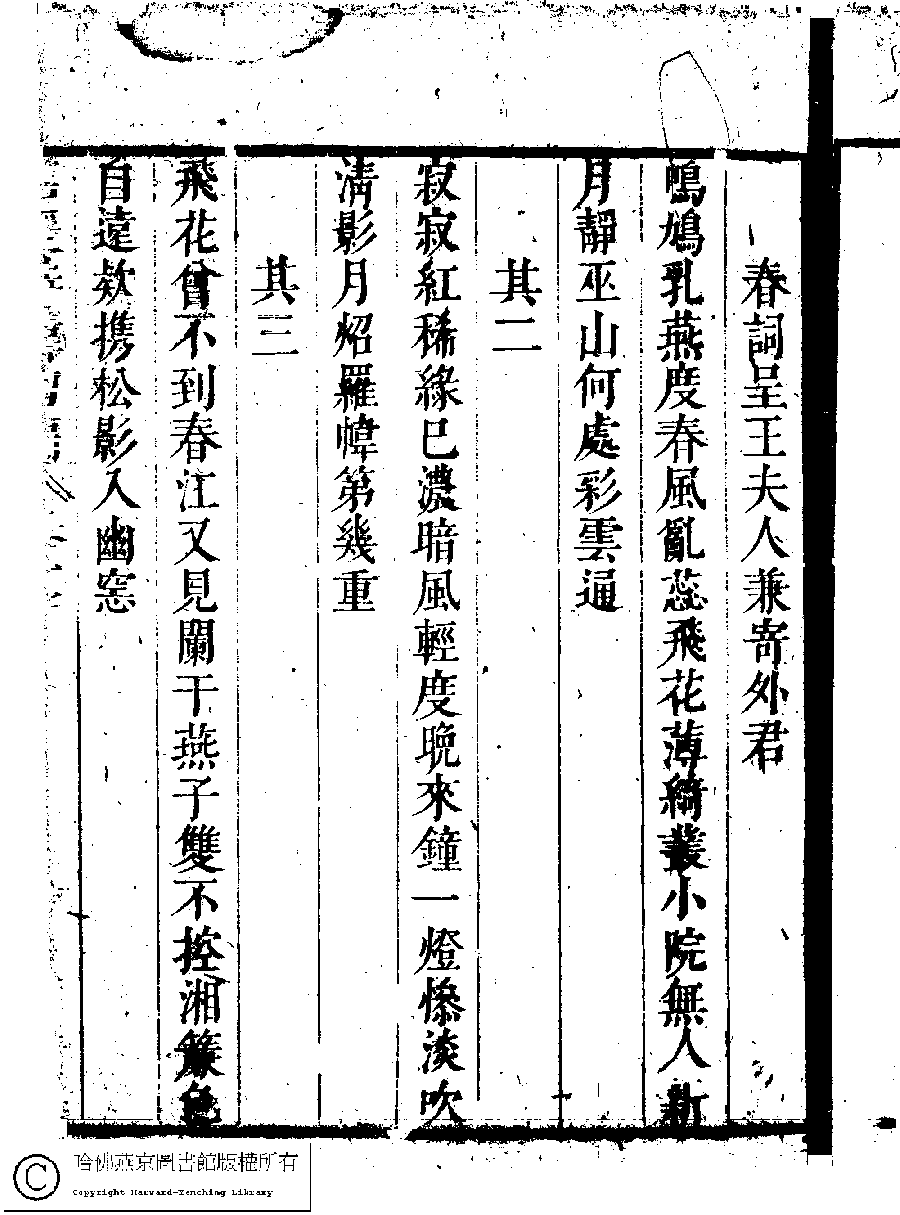 春詞呈王夫人兼寄外君
鳴鳩乳燕度春風亂蕊飛花薄綺叢小院無人新
月靜巫山何處彩雲通
其二
寂寂紅稀綠已濃暗風輕度晚來鐘一燈慘淡吹
清影月炤羅幃第幾重
其三
飛花曾不到春江又見闌干燕子雙不控湘簾色
自遠欵携松影入幽窓
哈佛燕京圖書館版權所有
Copyright Harvard-Yenching Library